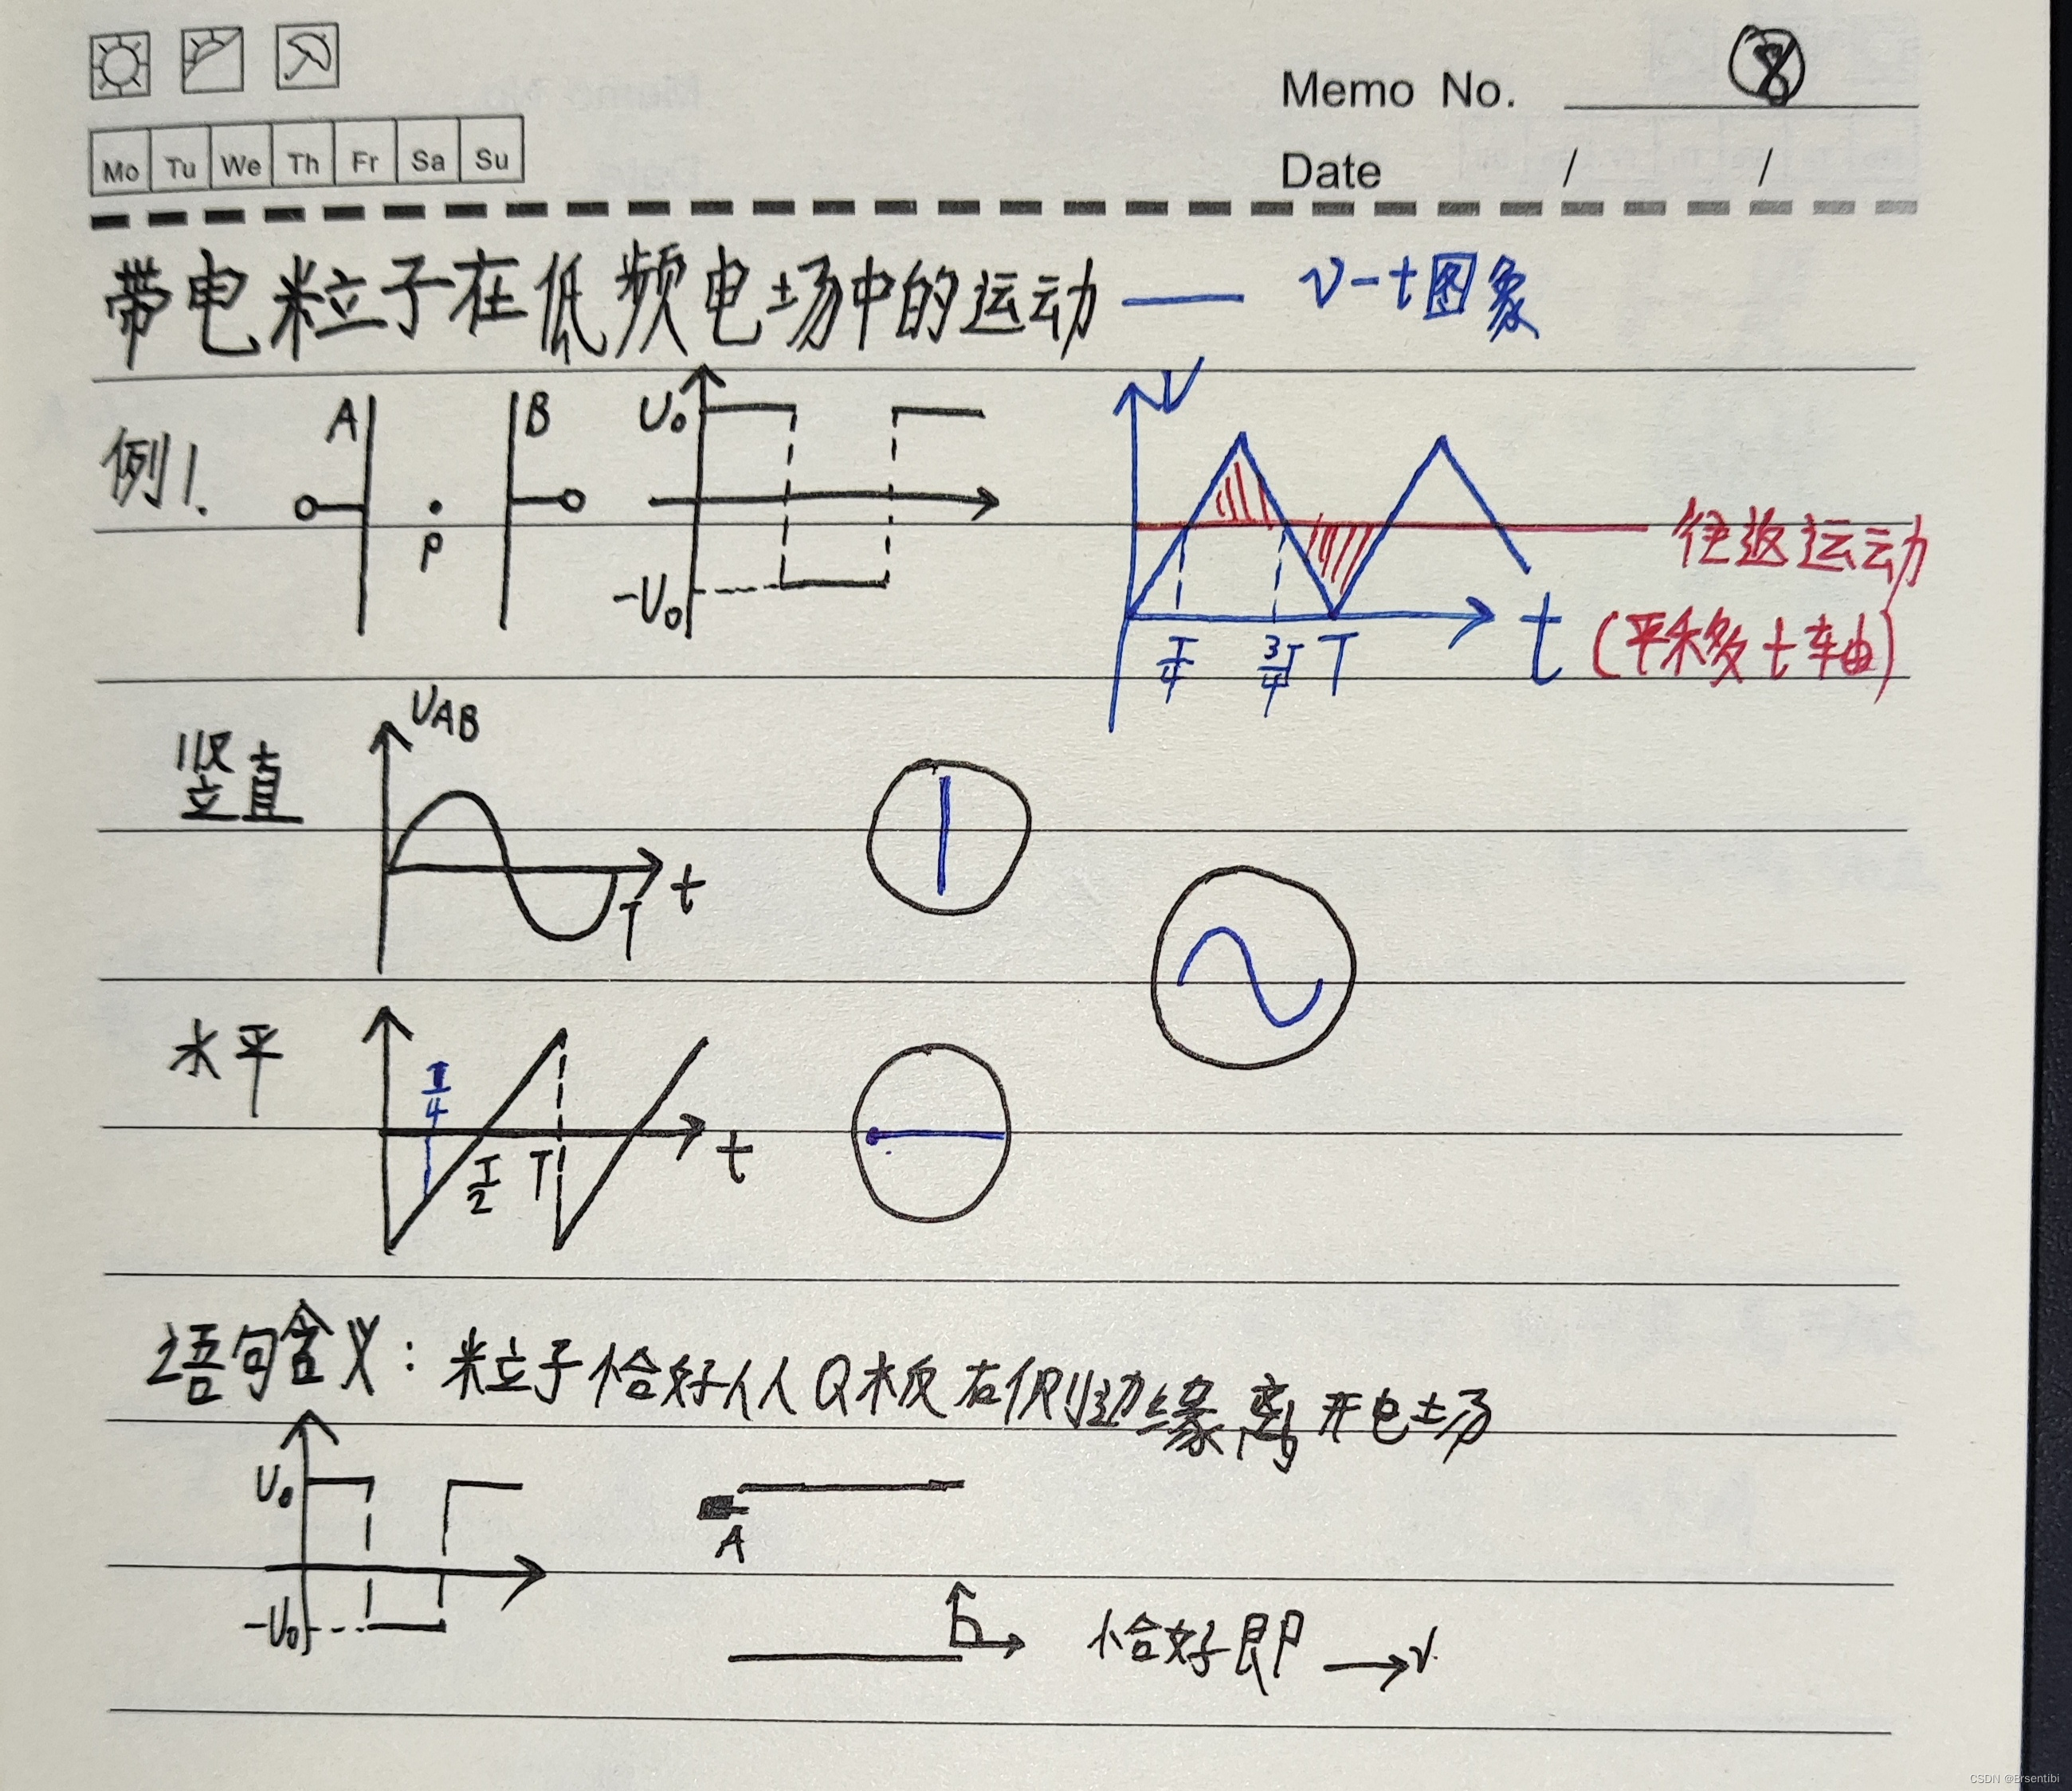 Memo No. ⑧
Mo Tu We Th Fr Sa Su
Date / /
带电粒子在低频电场中的运动 — v-t图象
例1.
A B
P
U₀
-U₀
V
T/4 3/4T T t
往返运动
(平移t轴)
竖直
U_AB
T t
水平
T/4
T/2 T t
语句含义：粒子恰好从Q板右侧边缘离开电场
U₀
-U₀
A
恰好即 →v
CSDN @Ersentibi